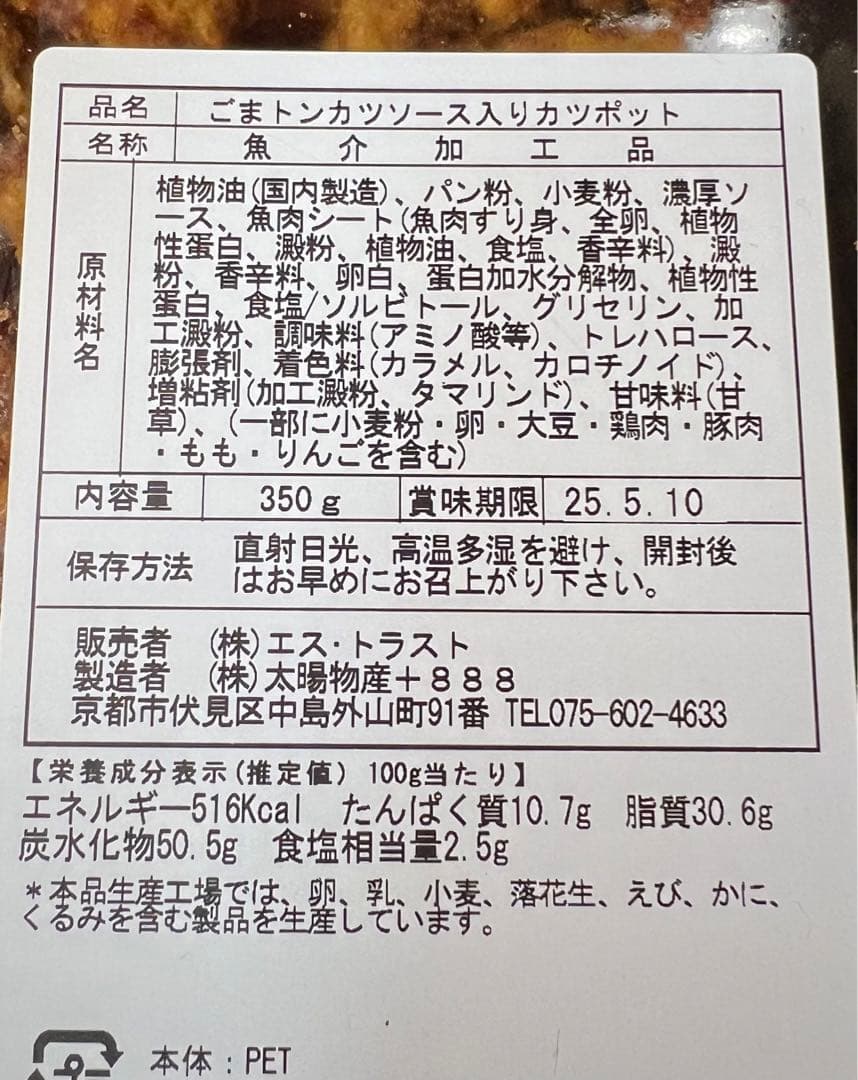 品名 ごまトンカツソース入りカツポット
名称 魚介加工品
原材料名
植物油(国内製造)、パン粉、小麦粉、濃厚ソ
ース、魚肉シート(魚肉すり身、全卵、植物
性蛋白、澱粉、植物油、食塩、香辛料)、澱
粉、香辛料、卵白、蛋白加水分解物、植物性
蛋白、食塩/ソルビトール、グリセリン、加
工澱粉、調味料(アミノ酸等)、トレハロース、
膨張剤、着色料(カラメル、カロチノイド)、
増粘剤(加工澱粉、タマリンド)、甘味料(甘
草)、(一部に小麦粉・卵・大豆・鶏肉・豚肉
・もも・りんごを含む)
内容量 350g 賞味期限 25.5.10
保存方法
直射日光、高温多湿を避け、開封後
はお早めにお召上がり下さい。
販売者 (株)エス・トラスト
製造者 (株)太陽物産+888
京都市伏見区中島外山町91番 TEL075-602-4633
【栄養成分表示(推定値) 100g当たり】
エネルギー516Kcal たんぱく質10.7g 脂質30.6g
炭水化物50.5g 食塩相当量2.5g
*本品生産工場では、卵、乳、小麦、落花生、えび、かに、
くるみを含む製品を生産しています。
本体:PET